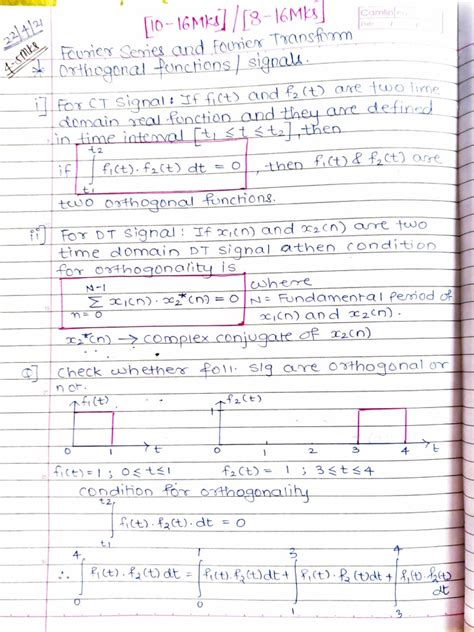 [10-16Mks] / [8-16Mks]
22/4/21
Fourier Series and Fourier Transform
Orthogonal functions / signals.
i] For CT signal: If f₁(t) and f₂(t) are two time
domain real function and they are defined
in time interval [t₁ ≤ t ≤ t₂], then
if ∫ₜ₁ᵗ² f₁(t). f₂(t) dt = 0 , then f₁(t) & f₂(t) are
two orthogonal functions.
ii] For DT signal: If x₁(n) and x₂(n) are two
time domain DT signal athen condition
for orthogonality is
N-1 Σ n=0 x₁(n). x₂*(n) = 0 where
N = Fundamental period of
x₁(n) and x₂(n).
x₂*(n) → complex conjugate of x₂(n)
Q] Check whether foll. sig are orthogonal or
not.
f₁(t) f₂(t)
1
0 1 t 0 1 2 3 4 t
f₁(t) = 1 ; 0 ≤ t ≤ 1 f₂(t) = 1 ; 3 ≤ t ≤ 4
condition for orthogonality
t₂ ∫ t₁ f₁(t). f₂(t). dt = 0
∴ ∫₀⁴ f₁(t). f₂(t) dt = ∫₀¹ f₁(t). f₂(t) dt + ∫₁³ f₁(t). f₂(t) dt + ∫₃⁴ f₁(t). f₂(t) dt